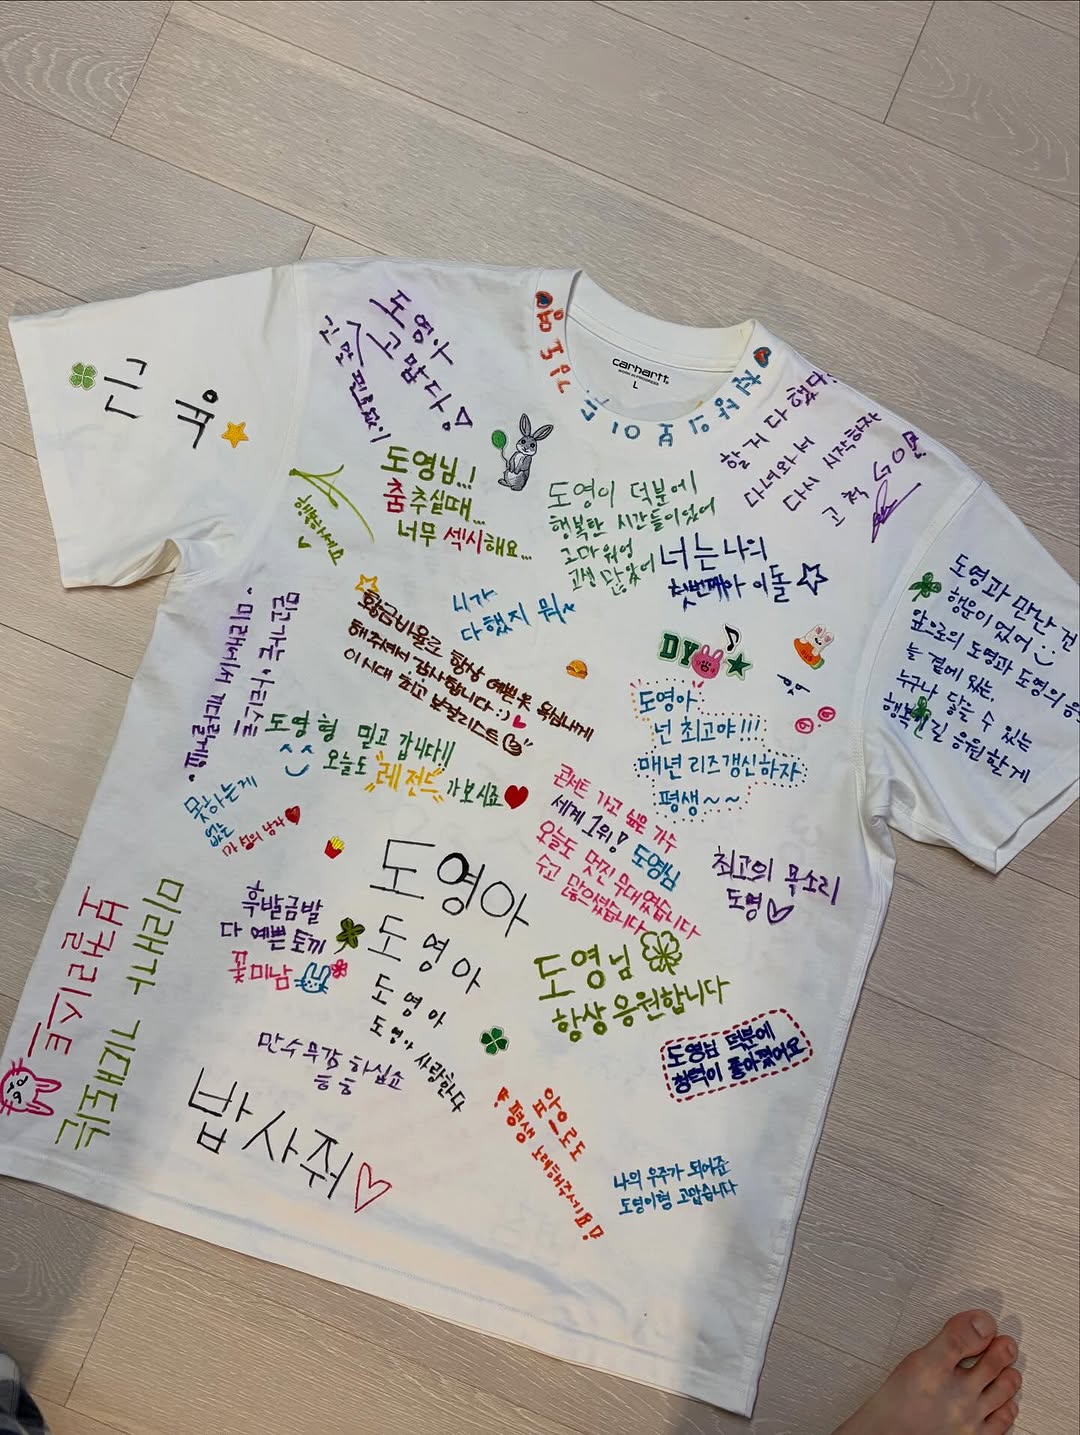 carhartt
WORK IN PROGRESS
L
근육
도영아
고맙다
도영님..!
춤추실때...
너무 섹시해요...
도영이 덕분에
행복한 시간들이었어
고마워엉
고생 많았어
너는 나의
첫번째 아이돌
할 거 다 했다
다녀와서
다시 시작하자
도영과 만난 건
행운이었어
앞으로의 도영과 도영의
늘 곁에 있는,
누구나 닿을 수 있는
행복을 빌 응원할게
황금비율로 항상 예쁜 옷 욱심내게
해주셔서 감사합니다 :)
이시대 최고 보컬리스트
다했지 뭐~
DY
도영아
넌 최고야!!!
매년 리즈갱신하자
평생~~
믿고 가는 아티스트
도영형 믿고 갑니다!!
오늘도 레전드가 보시죠
못하는게
없는
콘서트 가고 싶은 가수
세계 1위! 도영님
오늘도 멋진 무대였습니다
수고 많으셨습니다
최고의 목소리
도영
도영아
도영아
도영아
도영아 사랑한다
흑발금발
다 예쁜 토끼
꽃미남
도영님
항상 응원합니다
도영님 덕분에
청력이 좋아졌어요
미래가 기대되는
보컬리스트
만수무강 하십쇼
밥사줘
앞으로도
평생 노래해주세요!
나의 우주가 되어준
도영이형 고맙습니다